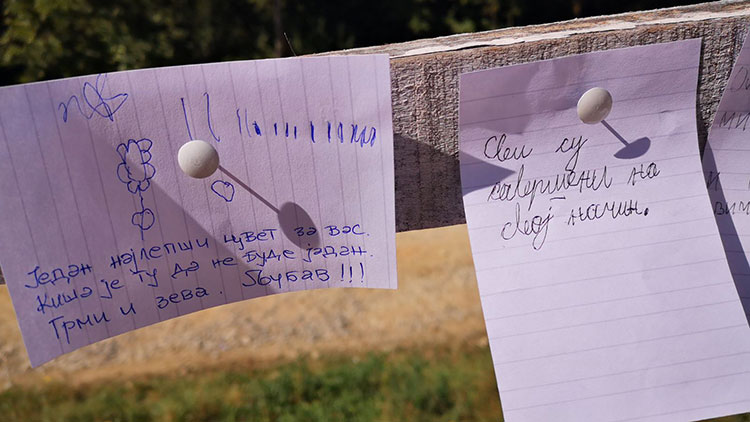 Један најлепши цувет за вас.
Киша је ту да не буде јадан.
Грми и зева. Љубав !!!
Сви су
савршени на
свој начин.